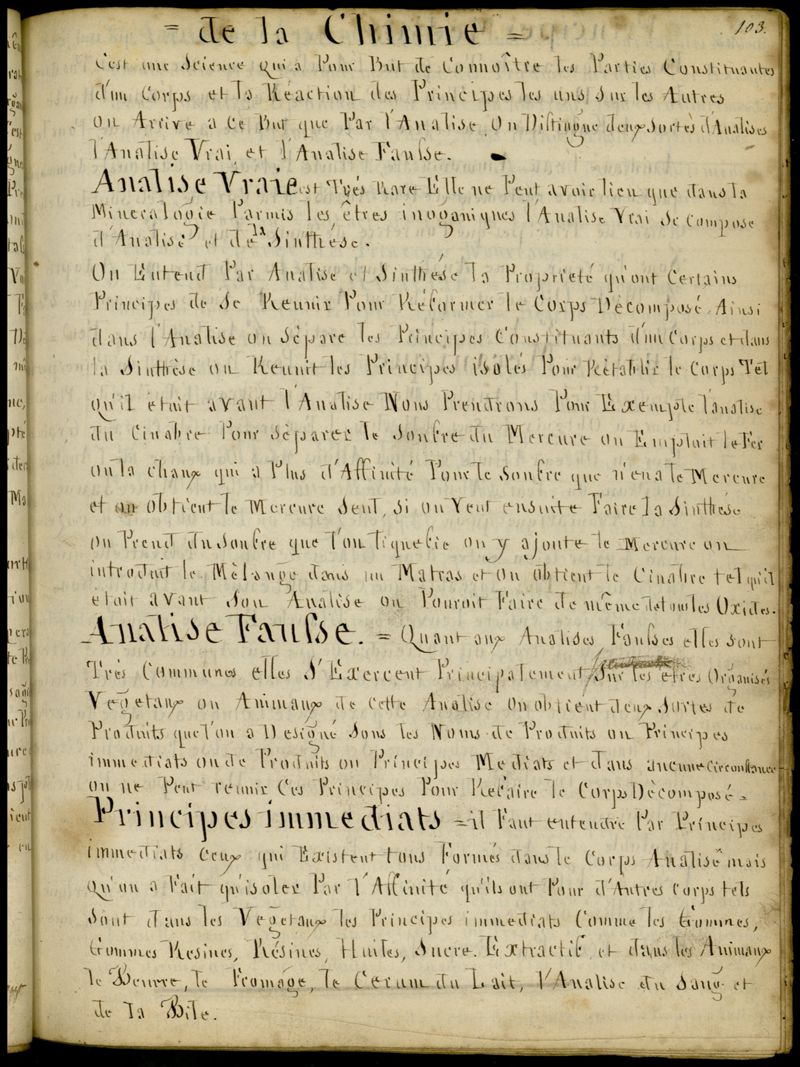 = de la Chimie =
103.
C'est une Science qui a Pour But de Connoître les Parties Constituantes
d'un Corps et la Réaction des Principes les uns Sur les Autres
on Arrive a Ce But que Par l'Analise. On Distingue deux Sortes d'Analises
l'Analise Vrai et l'Analise Fausse.
Analise Vraie est Très Rare Elle ne Peut avoir lieu que dans la
Mineralogie Parmis les êtres inoganiques l'Analise Vrai se Compose
d'Analise et de la Sinthèse.
On Entend Par Analise et Sinthèse la Propriété qu'ont Certains
Principes de Se Reunir Pour Réformer le Corps Décomposé. Ainsi
dans l'Analise on Sépare les Principes Constituants d'un Corps et dans
la Sinthèse on Reunit les Principes isolés Pour Rétablir le Corps Tel
qu'il était avant l'Analise Nous Prendrons Pour Exemple l'analise
du Cinabre Pour Séparer le Soufre du Mercure on Emploit le Fer
ou la chaux qui a Plus d'Affinité Pour le Soufre que n'en a le Mercure
et on obtient le Mercure Seul, Si on Veut ensuite Faire la Sinthèse
on Prend du Soufre que l'on liquefie on y ajoute le Mercure on
introduit le Mélange dans un Matras et on obtient le Cinabre tel qu'il
etait avant Son Analise on Pouroit Faire de même de tous les Oxides.
Analise Fausse. = Quant aux Analises Fausses elles sont
Très Communes elles S'Exercent Principalement Sur les êtres Organisés
Vegetaux ou Animaux de cette Analise on obtient deux Sortes de
Produits que l'on a Designé Sous les Noms de Produits ou Principes
immediats ou de Produits ou Principes Mediats et dans aucune Circonstance
on ne Peut reunir Ces Principes Pour Refaire le Corps Décomposé =
Principes immediats = il Faut entendre Par Principes
immediats Ceux qui Existent tous Formés dans le Corps Analisé mais
qu'on a Fait qu'isoler Par l'Affinité qu'ils ont Pour d'Autres Corps tels
Sont dans les Vegetaux les Principes immediats Comme les Gommes,
Gommes Resines, Résines, Huiles, Sucre. Extractif, et dans les Animaux
le Beurre, le Fromage, le Cerum du Lait, l'Analise du Sang et
de la Bile.